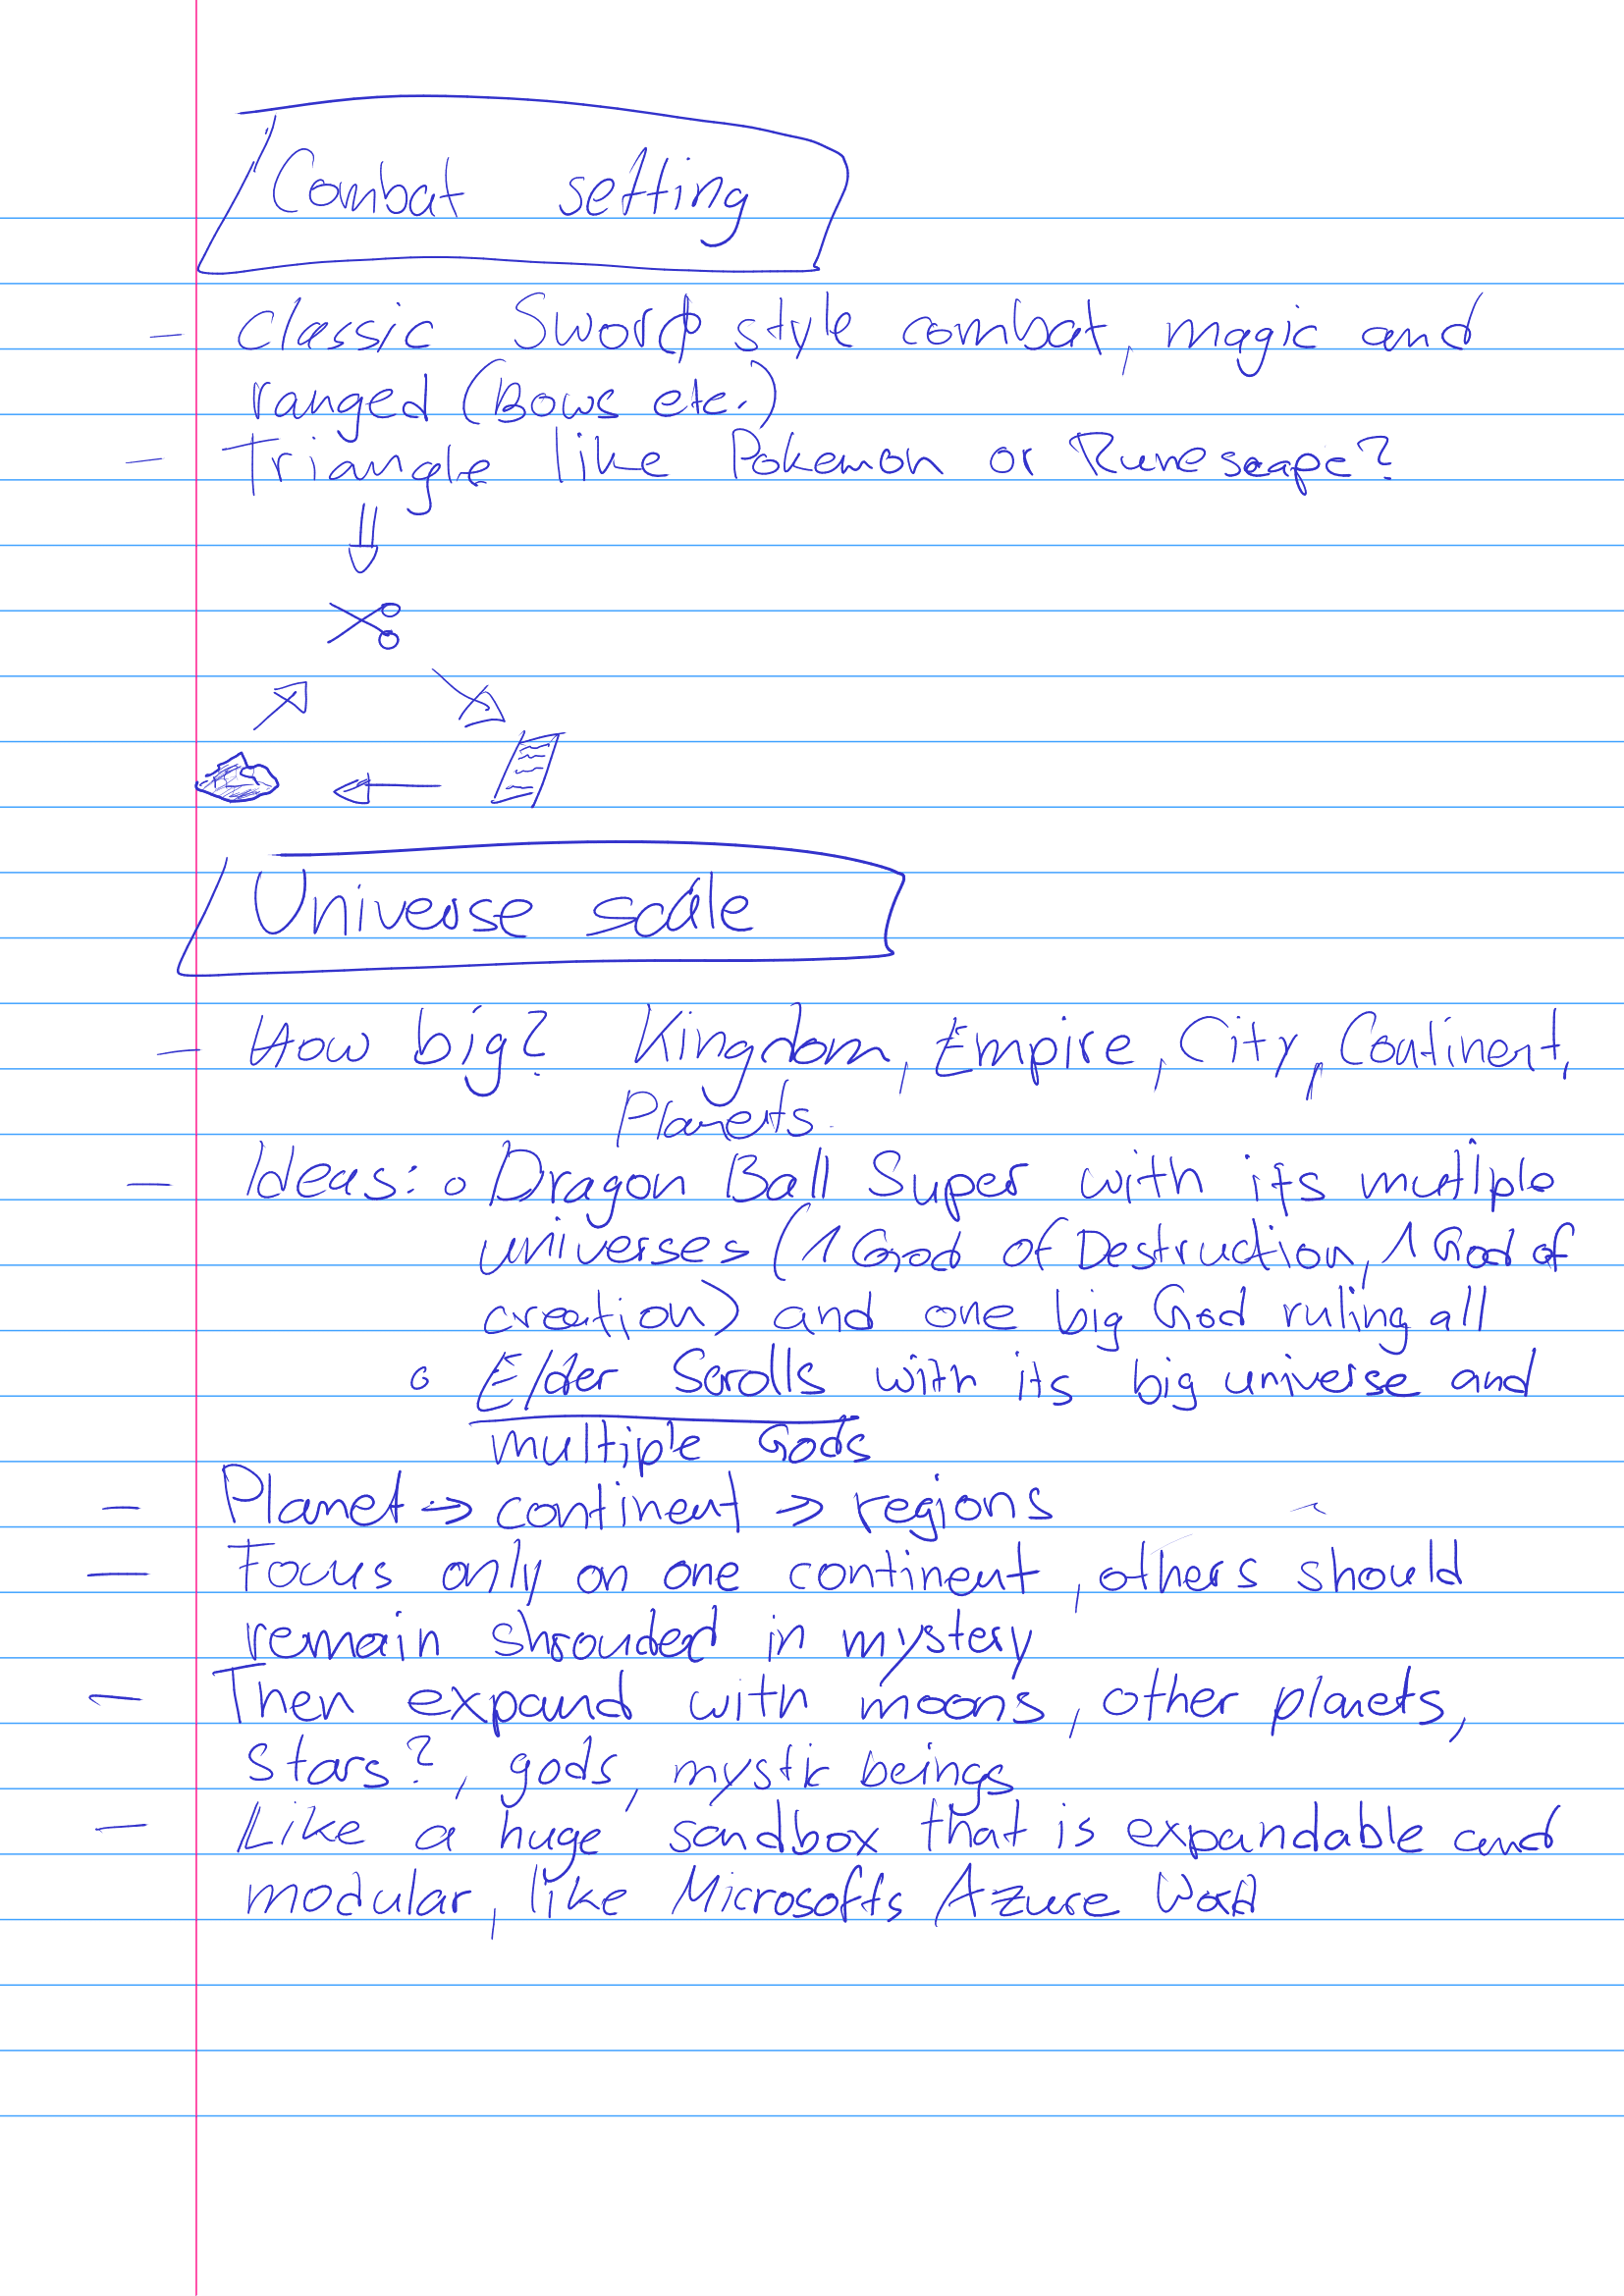 Combat setting
- Classic Sword style combat, magic and
ranged (Bows etc.)
- Triangle like Pokemon or Runescape?
Universe scale
- How big? Kingdom, Empire, City, Continent,
Planets.
- Ideas: o Dragon Ball Super with its mutiple
universes (1 God of Destruction, 1 God of
creation) and one big God ruling all
o Elder Scrolls with its big universe and
multiple Gods
- Planet -> continent -> regions
- Focus only on one continent, others should
remain shrouded in mystery
- Then expand with moons, other planets,
stars?, gods, mystic beings
- Like a huge sandbox that is expandable and
modular, like Microsofts Azure